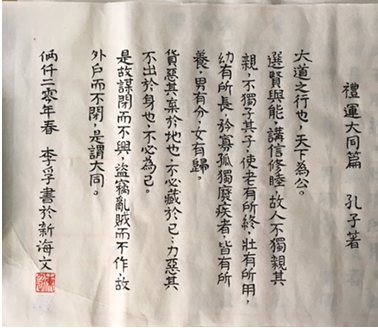 禮運大同篇 孔子著
大道之行也,天下為公。
選賢與能,講信修睦。故人不獨親其
親,不獨子其子,使老有所終,壯有所用,
幼有所長,矜寡孤獨廢疾者皆有所
養,男有分,女有歸。
貨惡其棄於地也,不必藏於己;力惡其
不出於身也,不必為己。
是故謀閉而不興,盜竊亂賊而不作,故
外戶而不閉,是謂大同。
倆仟二零年春 李孚書於新海文